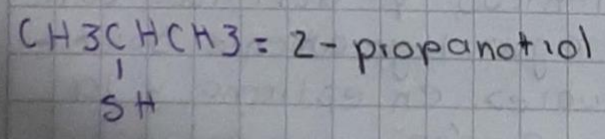 CH3CHCH3 = 2-propanotiol
|
SH